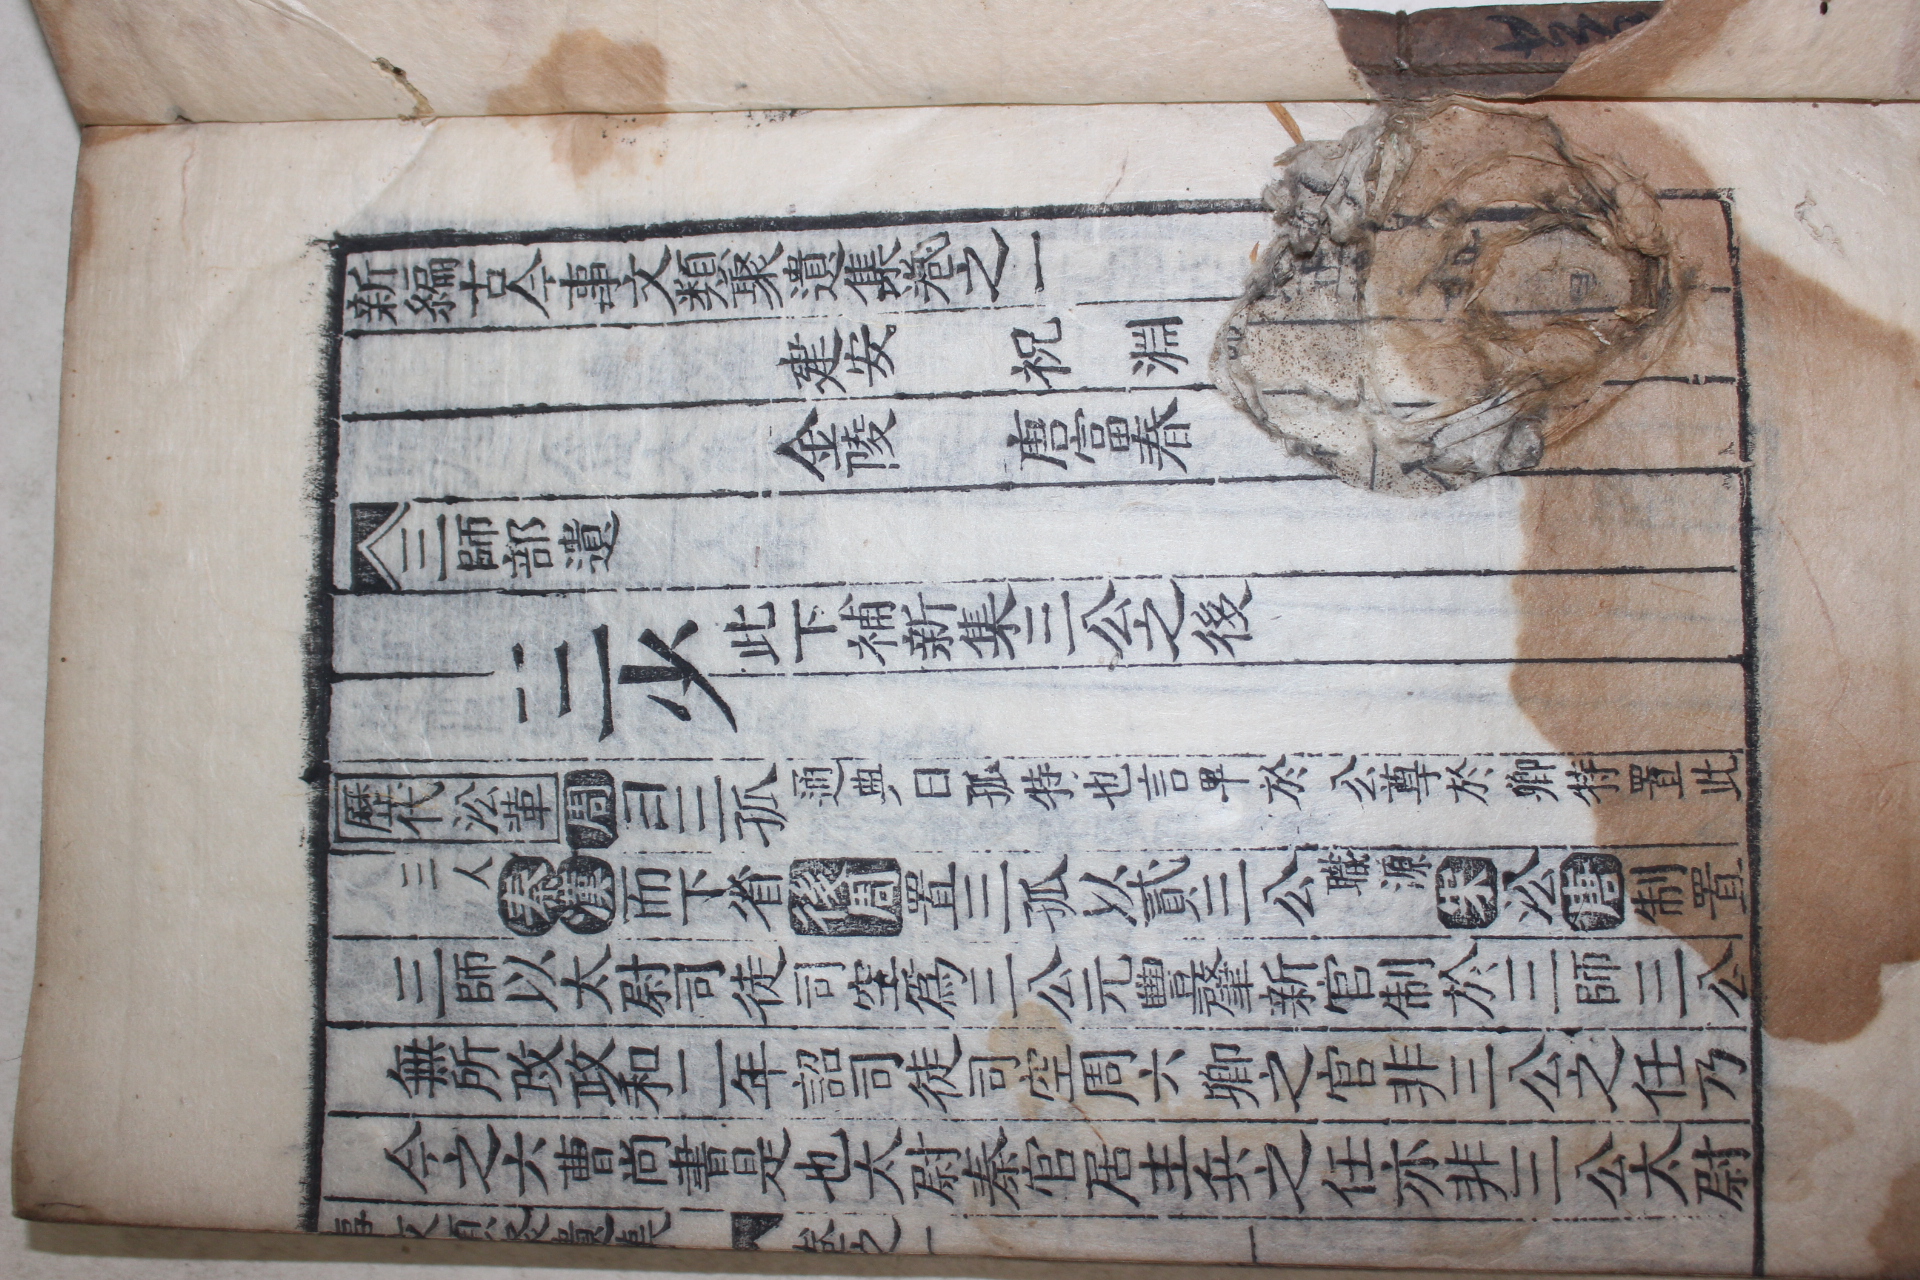 新編古今事文類聚遺集卷之一
建安 祝 淵
金陵 唐富春
三師部遺
三少 此下補新集三公之後
歷代沿革 周 曰三孤 通典曰孤特也言卑於公尊於卿特置此
三人 秦 漢 而下省 後周 置三孤以貳三公 職源 宋 沿 唐 制置
三師以太尉司徒司空爲三公元豐釐新官制於三師三公
無所改政和二年詔司徒司空周六卿之官非三公之任乃
今之六曹尚書是也太尉秦官居主兵之任亦非三公太尉
事文類聚遺集 卷之一